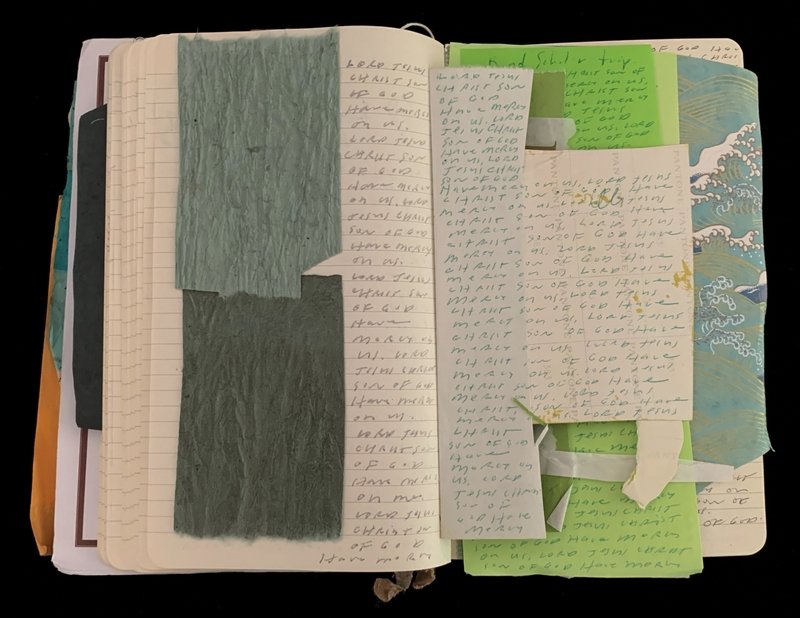 LORD JESUS
CHRIST SON
OF GOD
HAVE MERCY
ON US.
LORD JESUS
CHRIST SON
OF GOD
HAVE MERCY
ON US. LORD
JESUS CHRIST
SON OF GOD
HAVE MERCY
ON US.
LORD JESUS
CHRIST SON
OF GOD
HAVE
MERCY ON
US. LORD
JESUS CHRIST
SON OF GOD
HAVE MERCY
ON US.
LORD JESUS
CHRIST SON
OF GOD
HAVE MERCY
ON ME.
LORD JESUS
CHRIST
OF GOD
HAVE MERCY
LORD JESUS
CHRIST SON
OF GOD
HAVE MERCY
ON US. LORD
JESUS CHRIST
SON OF GOD
HAVE MERCY
ON US, LORD
JESUS CHRIST
SON OF GOD
HAVE MERCY ON US, LORD JESUS
CHRIST SON OF GOD HAVE
MERCY ON US, LORD JESUS
CHRIST SON OF GOD HAVE
MERCY ON US, LORD JESUS
CHRIST SON OF GOD HAVE
MERCY ON US, LORD JESUS
CHRIST SON OF GOD HAVE
MERCY ON US, LORD JESUS
CHRIST SON OF GOD HAVE
MERCY ON US, LORD JESUS
CHRIST SON OF GOD HAVE
MERCY ON US, LORD JESUS
CHRIST SON OF GOD HAVE
MERCY ON US, LORD JESUS
CHRIST SON OF GOD HAVE
MERCY ON US, LORD JESUS
CHRIST SON OF GOD HAVE
MERCY ON US, LORD JESUS
CHRIST
SON OF GOD
HAVE
MERCY ON
US, LORD
JESUS CHRIST
SON OF
GOD HAVE
MERCY
CHRIST SON OF
MERCY ON US,
CHRIST SON OF
HAVE MERCY
JESUS
OF GOD
ON US, LORD
SON OF GOD
JESUS CHRIST
HAVE MERCY
JESUS CHRIST
SON OF GOD HAVE MERCY
ON US, LORD JESUS CHRIST
SON OF GOD HAVE MERCY
OF GOD HAVE
OF GOD.